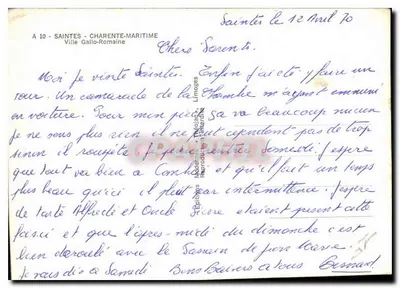 Saintes le 12 Avril 70
A 10 - SAINTES - CHARENTE-MARITIME
Ville Gallo-Romaine
Chers Parents.
Moi je visite Saintes. Enfin j'ai été y faire un
tour. Un camarade de la Chambre m'ayant emmené
en voiture. Pour mon pied ça va beaucoup mieux
je ne sens plus rien il ne faut cependant pas de trop
sinon il rouspète. Je samedi. J'espère
que tout va bien à et qu'il fait un temps
plus beau qu'ici il pleut par intermittence. J'espère
de tante Alfreda et Oncle Pierre étaient présent cette
fois ci et que l'après-midi du dimanche c'est
bien déroulé avec le
Je vous dis à Samedi Bons Baisers à tous Bernard